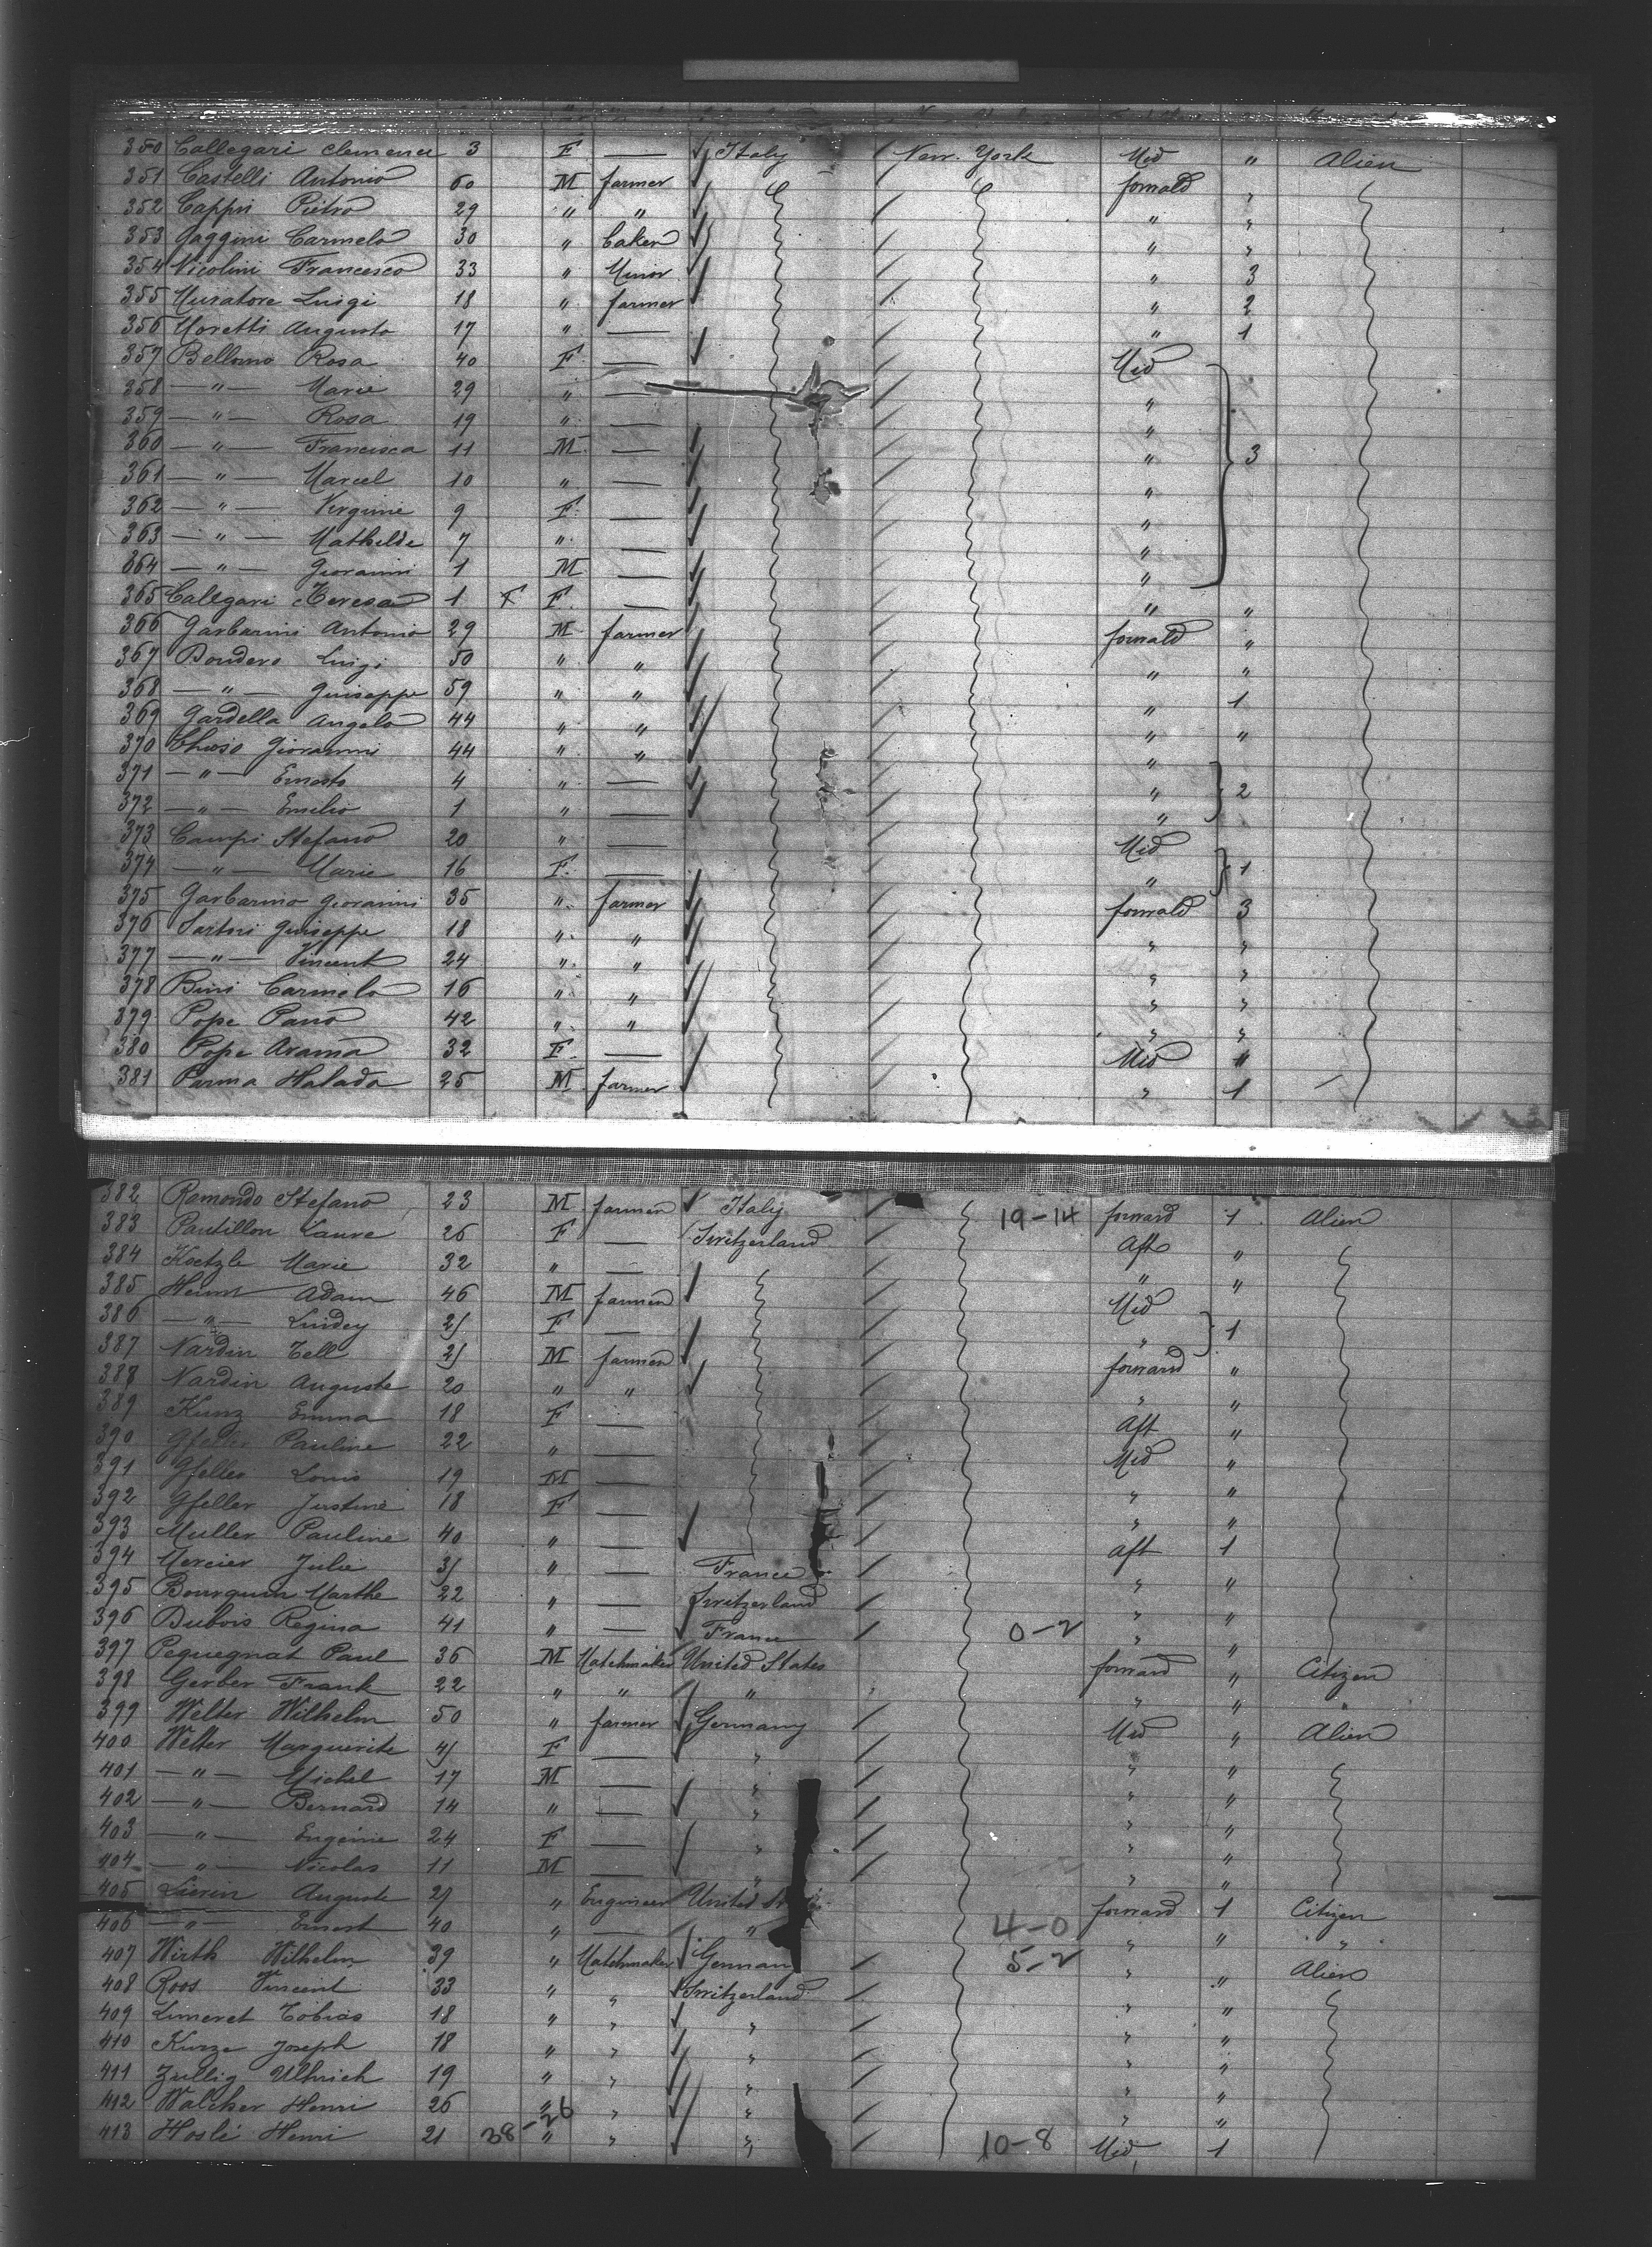 350 Callegari Clemence 3 F — Italy New-York Mid " Alien
351 Castelli Antonio 60 M farmer forwald "
352 Cappri Pietro 29 " " " "
353 Gaggini Carmelo 30 " baker " "
354 Nicolini Francesco 33 " Minor " 3
355 Muratore Luigi 18 " farmer " 2
356 Moretti Augusto 17 " — " 1
357 Bellomo Rosa 40 F — Mid
358 — " — Marie 29 " — "
359 — " — Rosa 19 " — "
360 — " — Francesca 11 M — " 3
361 — " — Marcel 10 " — "
362 — " — Virginie 9 F — "
363 — " — Mathilde 7 " — "
364 — " — Giovanni 1 M — "
365 Callegari Teresa 1 F F — " "
366 Garbarini Antonio 29 M farmer forwald "
367 Dondero Luigi 50 " " " "
368 — " — Guiseppe 59 " " " 1
369 Gardella Angelo 44 " " " "
370 Giovanni 44 " " "
371 — " — Ernesto 4 " — " 2
372 — " — Emilio 1 " — "
373 Campi Stefano 20 " — Mid
374 — " — Marie 16 F — " 1
375 Garbarino Giovanni 35 " farmer forwald 3
376 Sartori Guiseppe 18 " " " "
377 — " — Vincent 24 " " " "
378 Bini Carmelo 16 " " " "
379 Pope Pano 42 " " " "
380 Pope Arama 32 F — Mid "
381 Parma Halada 25 M farmer " 1
382 Ramondo Stefano 23 M farmer Italy 19-14 forward 1 Alien
383 Pautillon Laure 26 F — Switzerland Aft "
384 Koetzle Marie 32 " — " "
385 Adam 46 M farmer Mid
386 — " — Lindey 21 F — " 1
387 Nardin Tell 21 M farmer forward "
388 Nardin Auguste 20 " " " "
389 Kunz Emma 18 F — Aft "
390 Gfeller Pauline 22 " — Mid "
391 Gfeller Louis 19 M — " "
392 Gfeller Justine 18 F — " "
393 Muller Pauline 40 " — Aft 1
394 Mercier Julie 31 " — France " "
395 Bourquin Marthe 22 " — Switzerland " "
396 Dubois Regina 41 " — France 0-2 " "
397 Pequegnat Paul 36 M Watchmaker United States forward " Citizen
398 Gerber Frank 22 " " " " " "
399 Welter Wilhelm 50 " farmer Germany Mid " Alien
400 Welter Marguerite 41 F — " " "
401 — " — Michel 17 M — " " "
402 — " — Bernard 14 " — " " "
403 — " — Eugénie 24 F — " " "
404 — " — Nicolas 11 M — " " "
405 Auguste 21 " Engineer United forward 1 Citizen
406 — " — Ernest 40 " — " 4-0 " " "
407 Wirth Wilhelm 39 " Watchmaker Germany 5-2 " Alien
408 Roos Vincent 33 " " Switzerland " "
409 Limeret Tobias 18 " " " " "
410 Kunze Joseph 18 " " " " "
411 Zullig Ulhrich 19 " " " " "
412 Walcher Henri 26 " " " " "
413 Hosli Henri 21 38-26 " " " 10-8 Mid 1